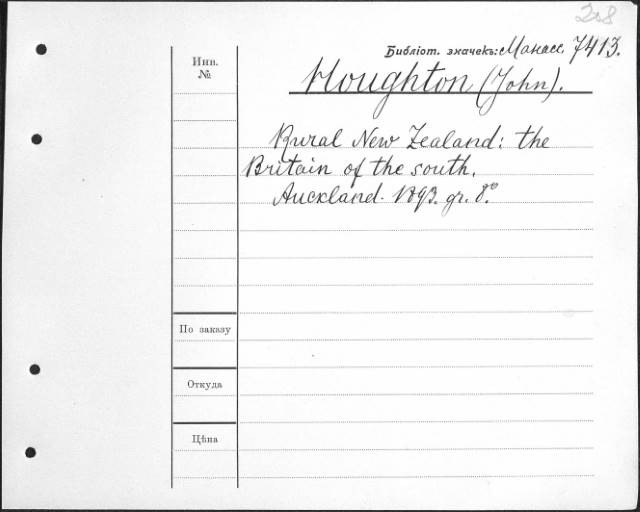 208
Библіот. значекъ: Манасс. 7413.
Инв.
№
Houghton (John).
Rural New Zealand: the
Britain of the south.
Auckland. 1893. gr. 8.º
По заказу
Откуда
Цѣна